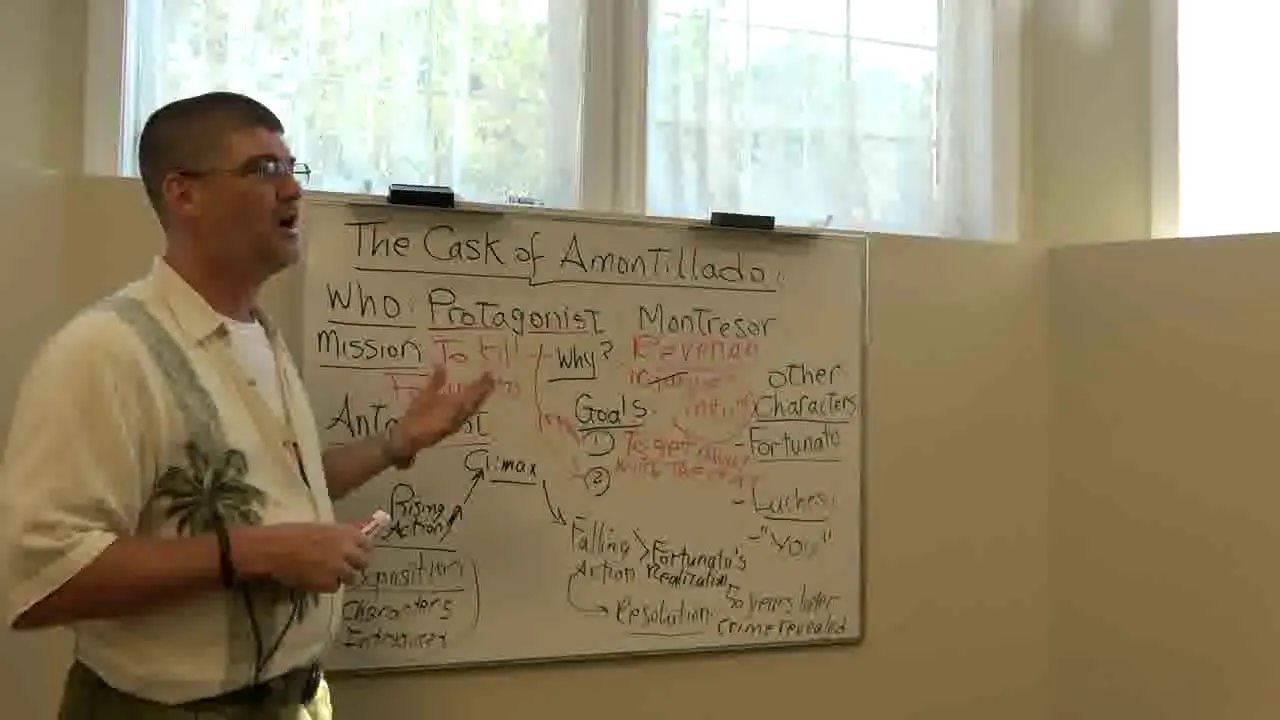 The Cask of Amontillado.
Who: Protagonist: Montresor
Mission To kill Why? Revenge
other
Characters
Goals
- Fortunato
① To get away
②
with the
Climax
- Luchesi
- "YOU"
Rising
Action
Falling
Action
Fortunato's
Realization
Exposition
Characters
Introduced
Resolution: 50 years later
crime revealed